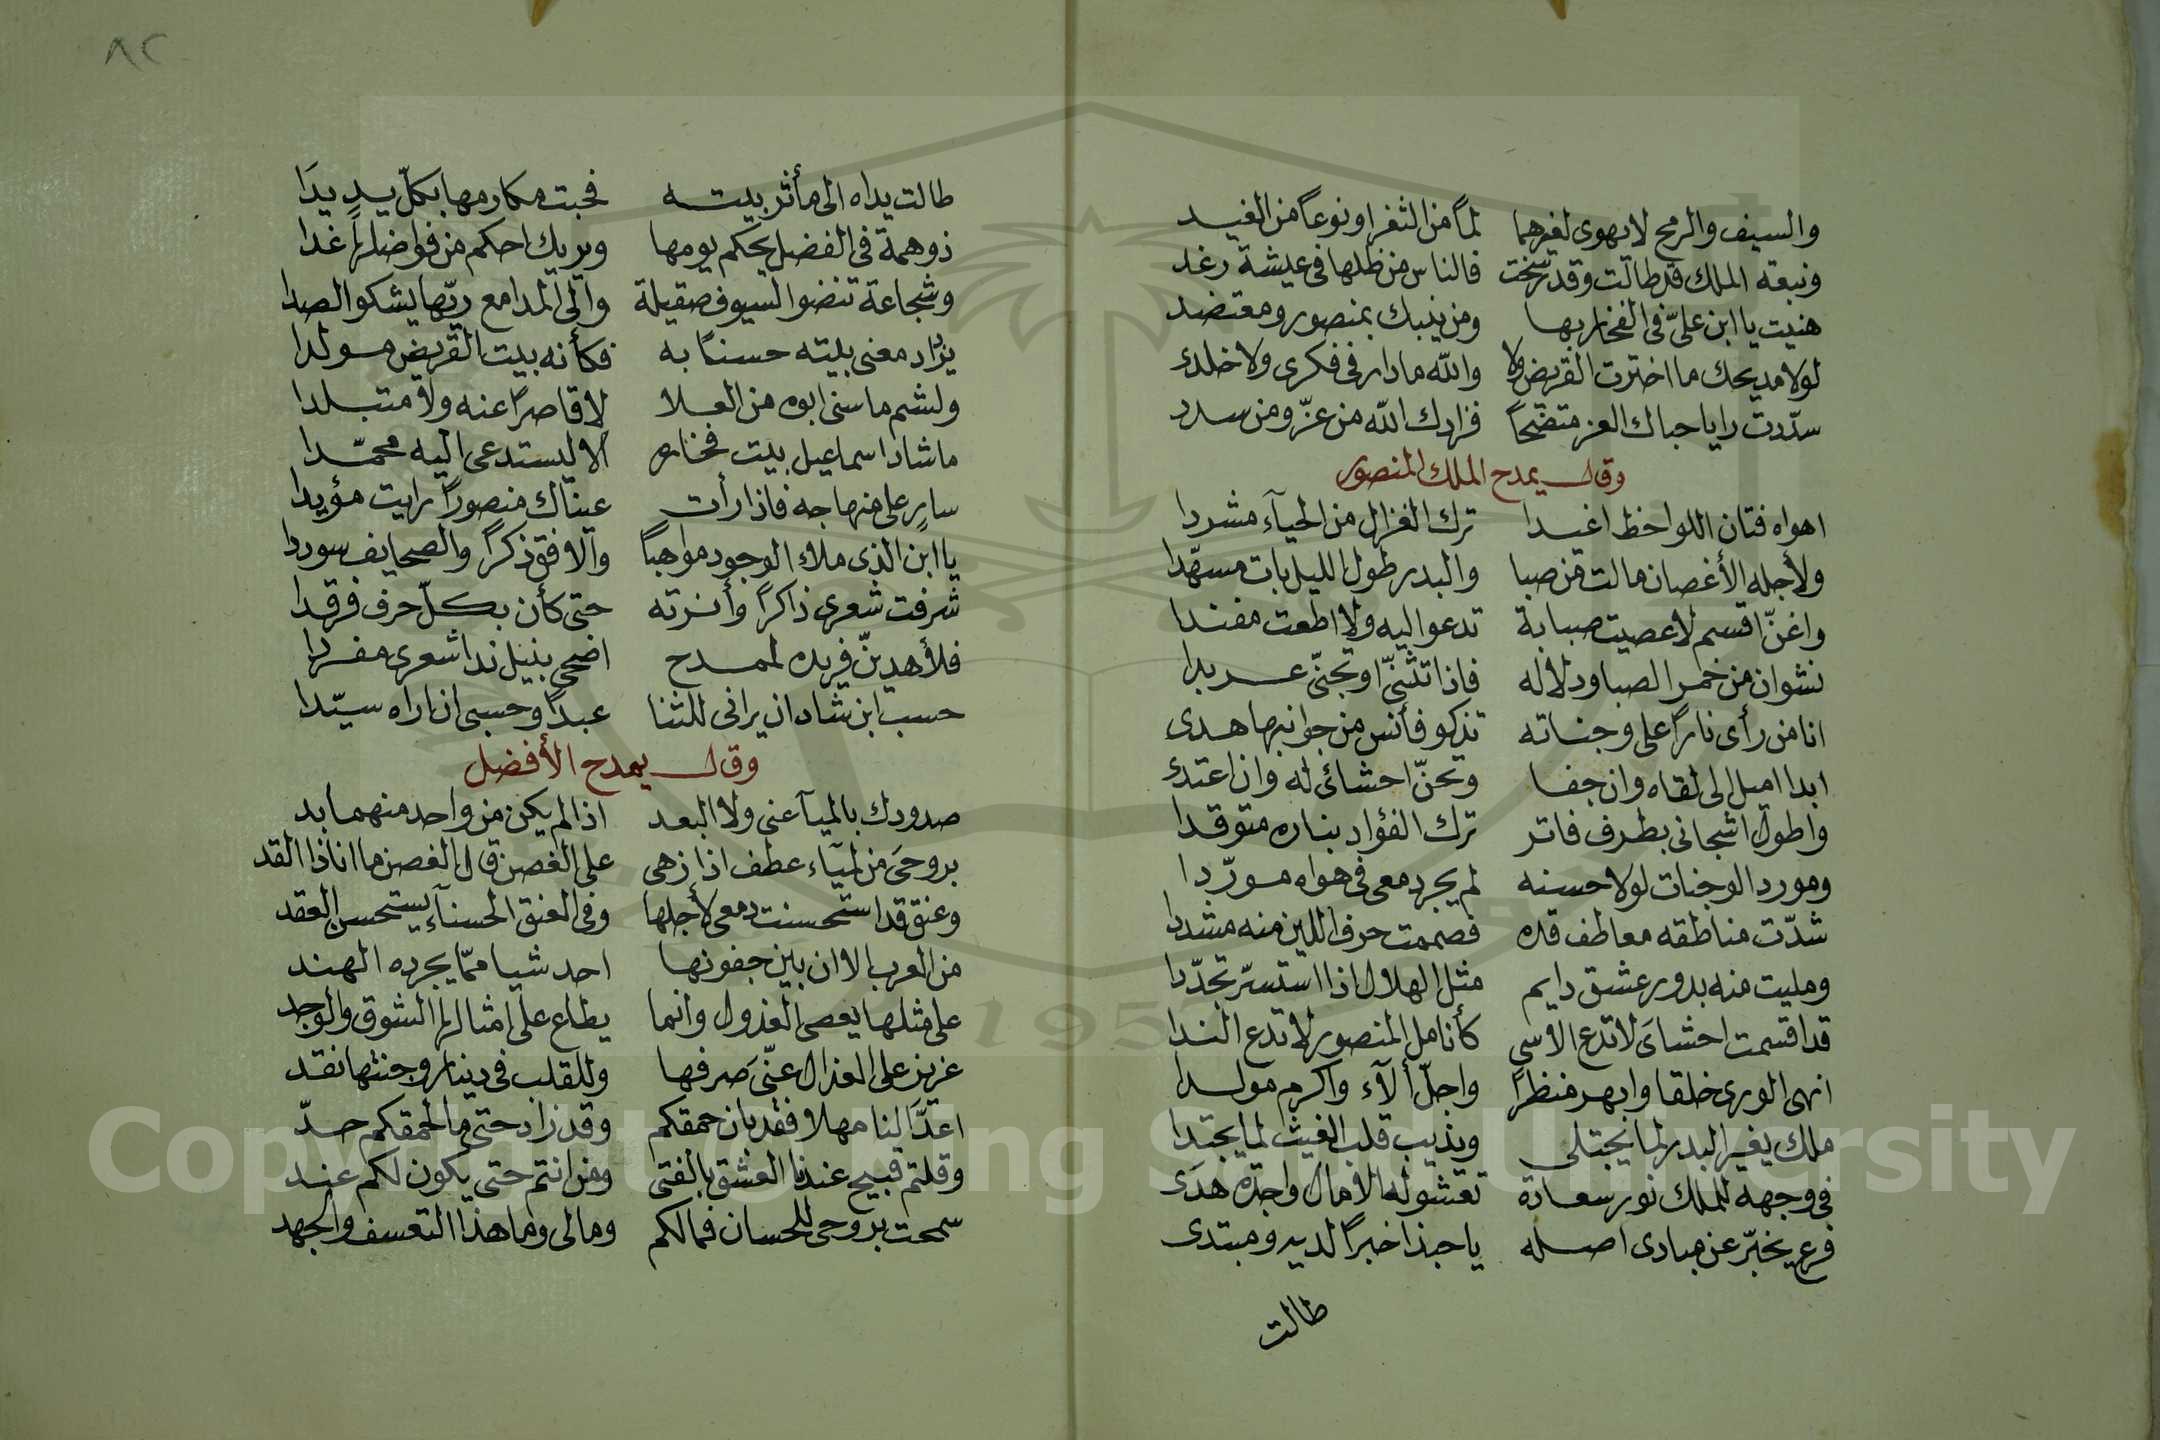 والسيف والرمح لا يهوى لغيرهما لمًا من الثغر او نوعًا من الغيد
ونبعة الملك قد طالت وقد رسخت فالناس من ظلها في عيشة رغد
هنيت يا ابن عليّ في الفخار بها ومن ينبك بمنصور ومعتضد
لولا مديحك ما اخترت القريض ولا والله ما دار في فكرى ولا خلدى
سدّدت رايا حباك العز متضحًا فزادك الله من عزّ ومن سدد
وقال يمدح الملك المنصور
اهواه فتان اللواحظ اغيدا ترك الغزال من الحيآء مشردا
ولأجله الأغصان مالت من صبا والبدر طول الليل بات مسهّدا
واغنّ اقسم لا عصيت صبابة تدعو اليه ولا اطعت مفندا
نشوان من خمر الصبا ودلاله فاذا تثنّى او تجنّى عربدا
انا من رأى نارًا على وجناته تذكو فأنس من جوانبها هدى
ابدا اميل الى لقاه وان جفا وتحنّ احشائى له وان اعتدى
واطول اشجانى بطرف فاتر ترك الفؤاد بناره متوقدا
ومورد الوجنات لولا حسنه لم يجر دمعى فى هواه مورّدا
شدّت مناطقه معاطف قده فصممت حرف اللين منه مشددا
ومليت منه بدور عشق دايم مثل الهلال اذا استسرّ تجدّدا
قد اقسمت احشاى لا تدع الاسى كأنامل المنصور لا تدع الندا
انهى الورى خلقا وابهر منظرًا واجلّ ألآء واكرم مولدا
ملك يغير البدر لما يجتلى ويذيب قلب الغيث لما يجتدا
فى وجهه للملك نور سعادة تعشو له الامال واجدة هدَى
فرع يخبّر عن مبادى اصله يا حبذا خبرًا لديه ومبتدى
طالت
٨٢
طالت يداه الى مأثر بيته فحبت مكارمها بكلّ يدٍ يدَا
ذو همة فى الفضل يحكم يومها ويريك احكم من فواضلها غدا
وشجاعة تنضوا السيوف صقيلة والى المدامع ربّها يشكو الصدا
يزداد معنى بيته حسنًا به فكأنه بيت القريض مولدا
ولشم ما سنى ابوه من العلا لا قاصرًا عنه ولا متبلدا
ما شاد اسماعيل بيت فخاره الا ليستدعى اليه محمّدا
سارٍ على منهاجه فاذا رأت عيناك منصورًا رايت مؤيدا
يا ابن الذى ملاء الوجود مواهبًا والافق ذكرًا والصحايف سوددا
شرفت شعرى ذاكرًا وأنرته حتى كأن بكلّ حرف فرقدا
فلأهدينّ فريده لممدح اضحى بنيل ندا شعرى مفردا
حسب ابن شاد ان يرانى للثنا عبدًا وحسبى ان اراه سيّدا
وقال يمدح الأفضل
صدودك يا لميآ عنى ولا البعد اذا لم يكن من واحد منهما بد
بروحىَ من لميآء عطف اذا زهى على الغصن قال الغصن ما انا ذا القد
وعنق قد استحسنت دمعى لأجلها وفى العنق الحسنآء يستحسن العقد
من العرب الا ان بين جفونها احد شيا ممّا يجرده الهند
على مثلها يعصى العذول وانما يطاع على امثالها الشوق والوجد
عزيز على العذال عنّىَ صرفها وللقلب فى دينار وجنتها نقد
اعذّالنا مهلا فقد بان حمقكم وقد زاد حتى ما لحمقكم حدّ
وقلتم قبيح عندنا العشق بالفتى ومن انتم حتى يكون لكم عند
سمحت بروحى للحسان فمالكم ومالى وما هذا التعسف والجهد
Copyright © King Saud University
1957